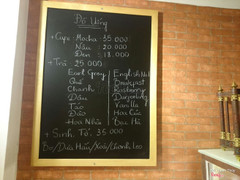 Đồ Uống
+ Cafe: Mocha: 35.000
Nâu : 20.000
Đen : 18.000
+ Trà : 25.000
Earl Grey / English
Quế / Breakfast
Chanh / Raspberry
Dâu / Darjeeling
Táo / Vanilla
Đào / Hoa Cúc
Hoa Nhài / Bạc Hà
+ Sinh Tố: 35.000
Bơ/Dưa Hấu/Xoài/Chanh Leo